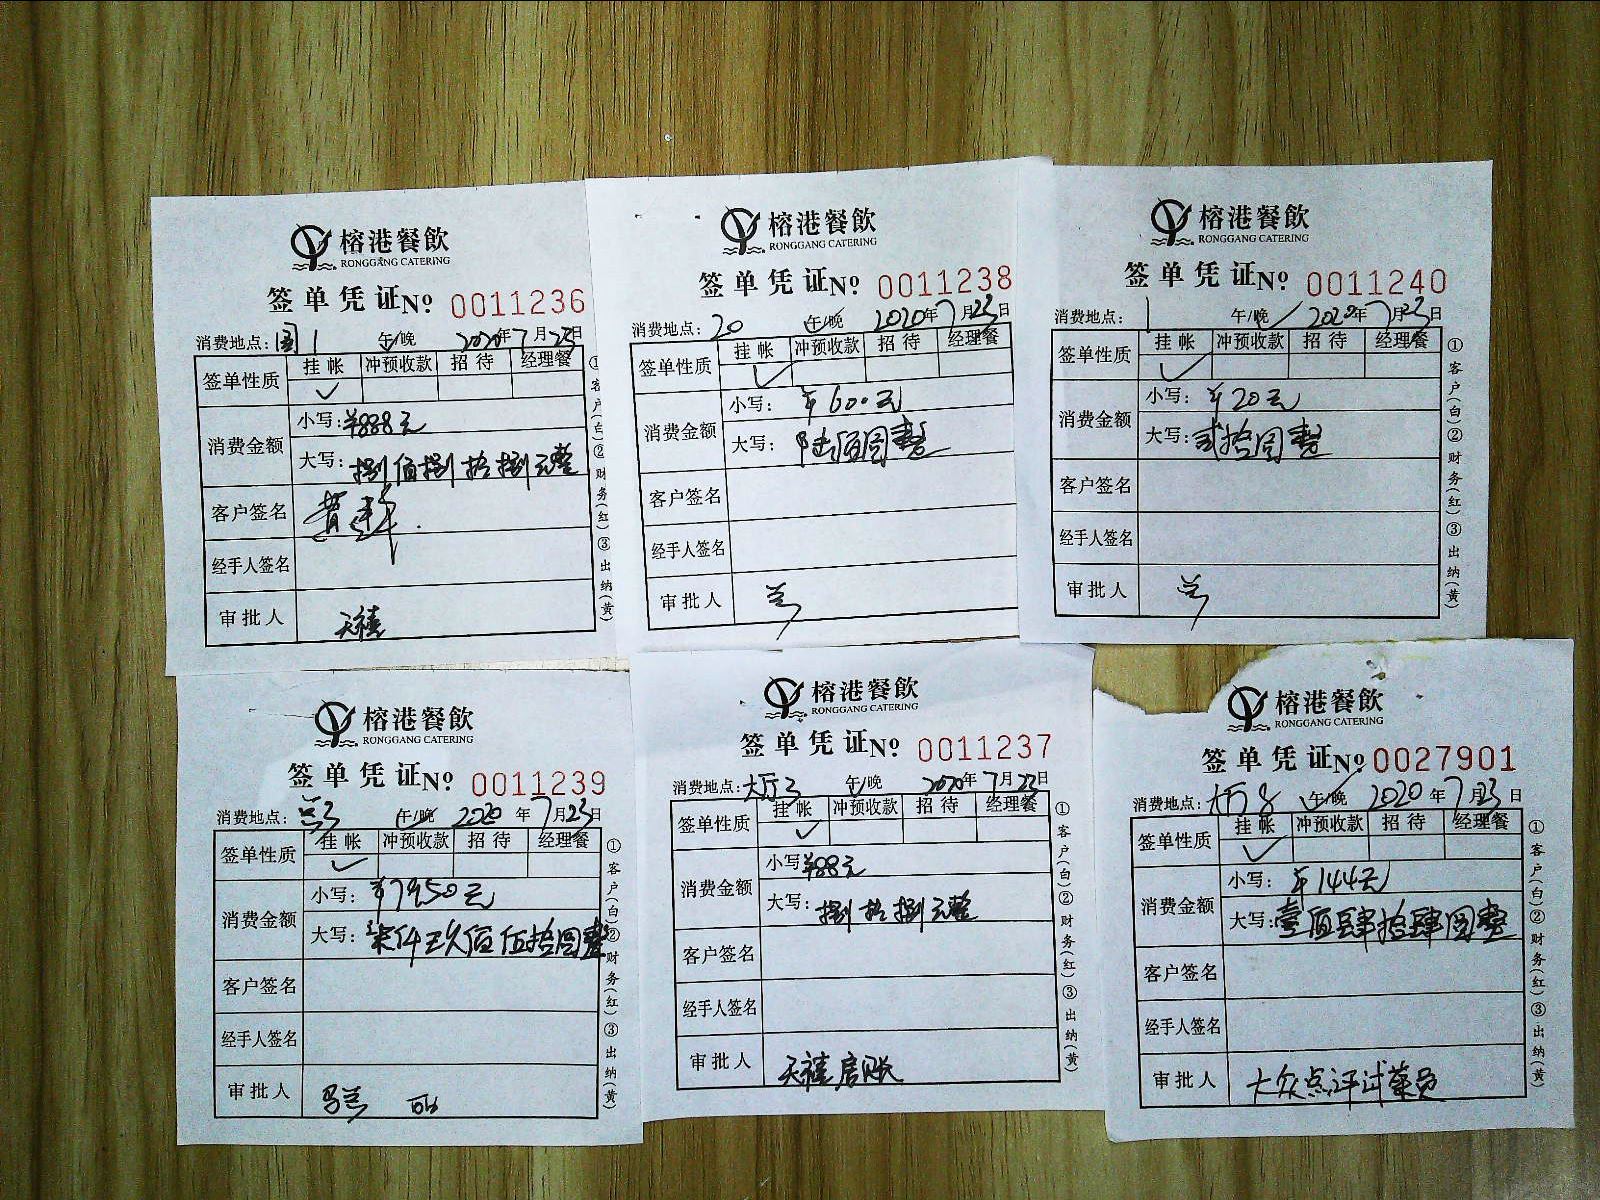 榕港餐飲
RONGGANG CATERING
签单凭证No 0011236
消费地点: 1 午/晚 2020年7月23日
签单性质 挂帐 冲预收款 招待 经理餐
✓
消费金额 小写:¥888元
大写:捌佰捌拾捌元整
客户签名
经手人签名
审批人 天禧
①客户(白)②财务(红)③出纳(黄)
榕港餐飲
RONGGANG CATERING
签单凭证No 0011238
消费地点: 20 午/晚 2020年7月23日
签单性质 挂帐 冲预收款 招待 经理餐
✓
消费金额 小写: ¥600元
大写: 陆佰圆整
客户签名
经手人签名
审批人 兰
榕港餐飲
RONGGANG CATERING
签单凭证No 0011240
消费地点: 1 午/晚 2020年7月23日
签单性质 挂帐 冲预收款 招待 经理餐
✓
消费金额 小写: ¥20元
大写:贰拾圆整
客户签名
经手人签名
审批人 兰
①客户(白)②财务(红)③出纳(黄)
榕港餐飲
RONGGANG CATERING
签单凭证No 0011239
消费地点: 兰3 午/晚 2020年7月23日
签单性质 挂帐 冲预收款 招待 经理餐
✓
消费金额 小写: ¥7950元
大写: 柒仟玖佰伍拾圆整
客户签名
经手人签名
审批人 马兰
①客户(白)②财务(红)③出纳(黄)
榕港餐飲
RONGGANG CATERING
签单凭证No 0011237
消费地点:大厅3 午/晚 2020年7月23日
签单性质 挂帐 冲预收款 招待 经理餐
✓
消费金额 小写¥88元
大写: 捌拾捌元整
客户签名
经手人签名
审批人 天禧房账
①客户(白)②财务(红)③出纳(黄)
榕港餐飲
RONGGANG CATERING
签单凭证No 0027901
消费地点: 大厅8 午/晚 2020年7月23日
签单性质 挂帐 冲预收款 招待 经理餐
✓
消费金额 小写: ¥144元
大写:壹佰肆拾肆圆整
客户签名
经手人签名
审批人 大众点评试菜员
①客户(白)②财务(红)③出纳(黄)